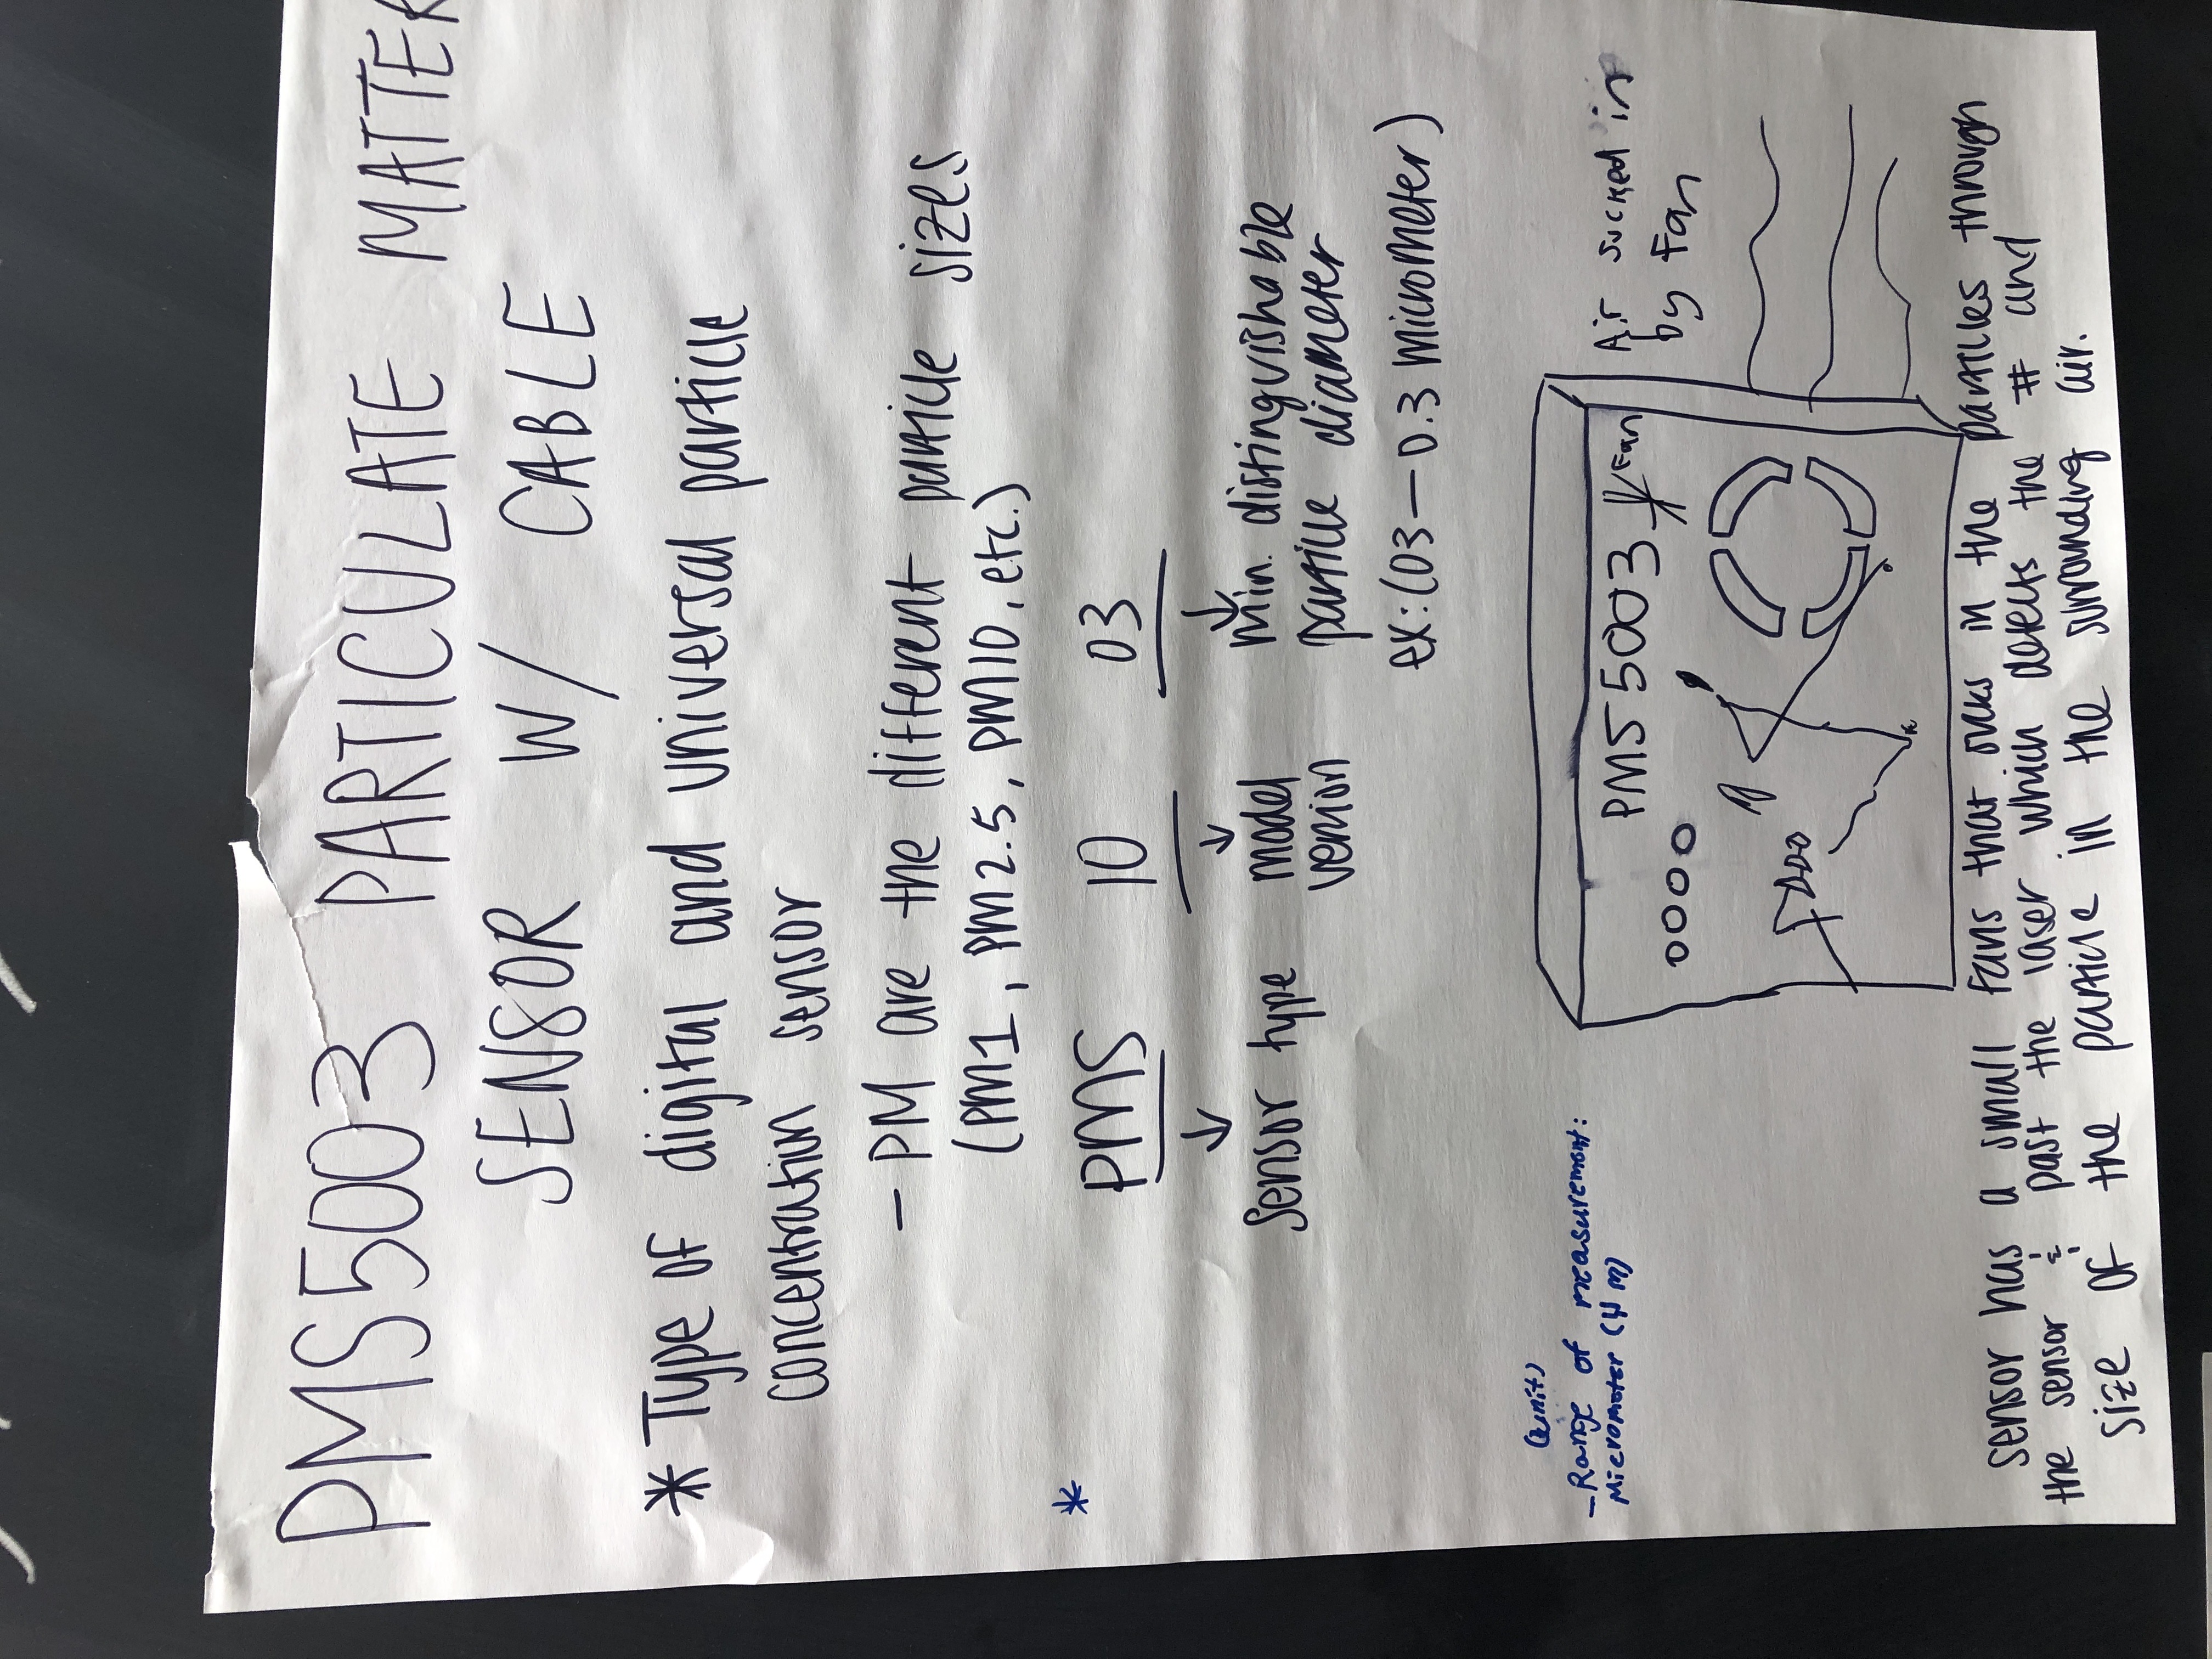 PMS5003 PARTICULATE MATTER
SENSOR W/ CABLE
* Type of digital and universal particle
concentration sensor
- PM are the different particle sizes
(PM1, PM2.5, PM10, etc.)
* PMS 10 03
sensor type
model
version
min. distinguishable
particle diameter
ex: (03 - 0.3 micrometer)
(unit)
- Range of measurement:
Micrometer (μm)
PMS5003
Fan
Air sucked in
by Fan
sensor has a small fans that sucks in the particles through
the sensor & past the laser which detects the # and
size of the particle in the surrounding air.